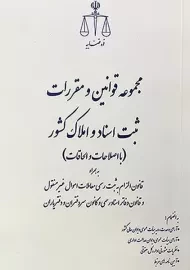 قوه قضاییه
مجموعه قوانین و مقررات
ثبت اسناد و املاک کشور
(با اصلاحات و الحاقات)
به همراه
قانون الزام به ثبت رسمی معاملات اموال غیرمنقول
و قانون دفاتر اسناد رسمی و کانون سردفتران و دفتریاران
به انضمام: